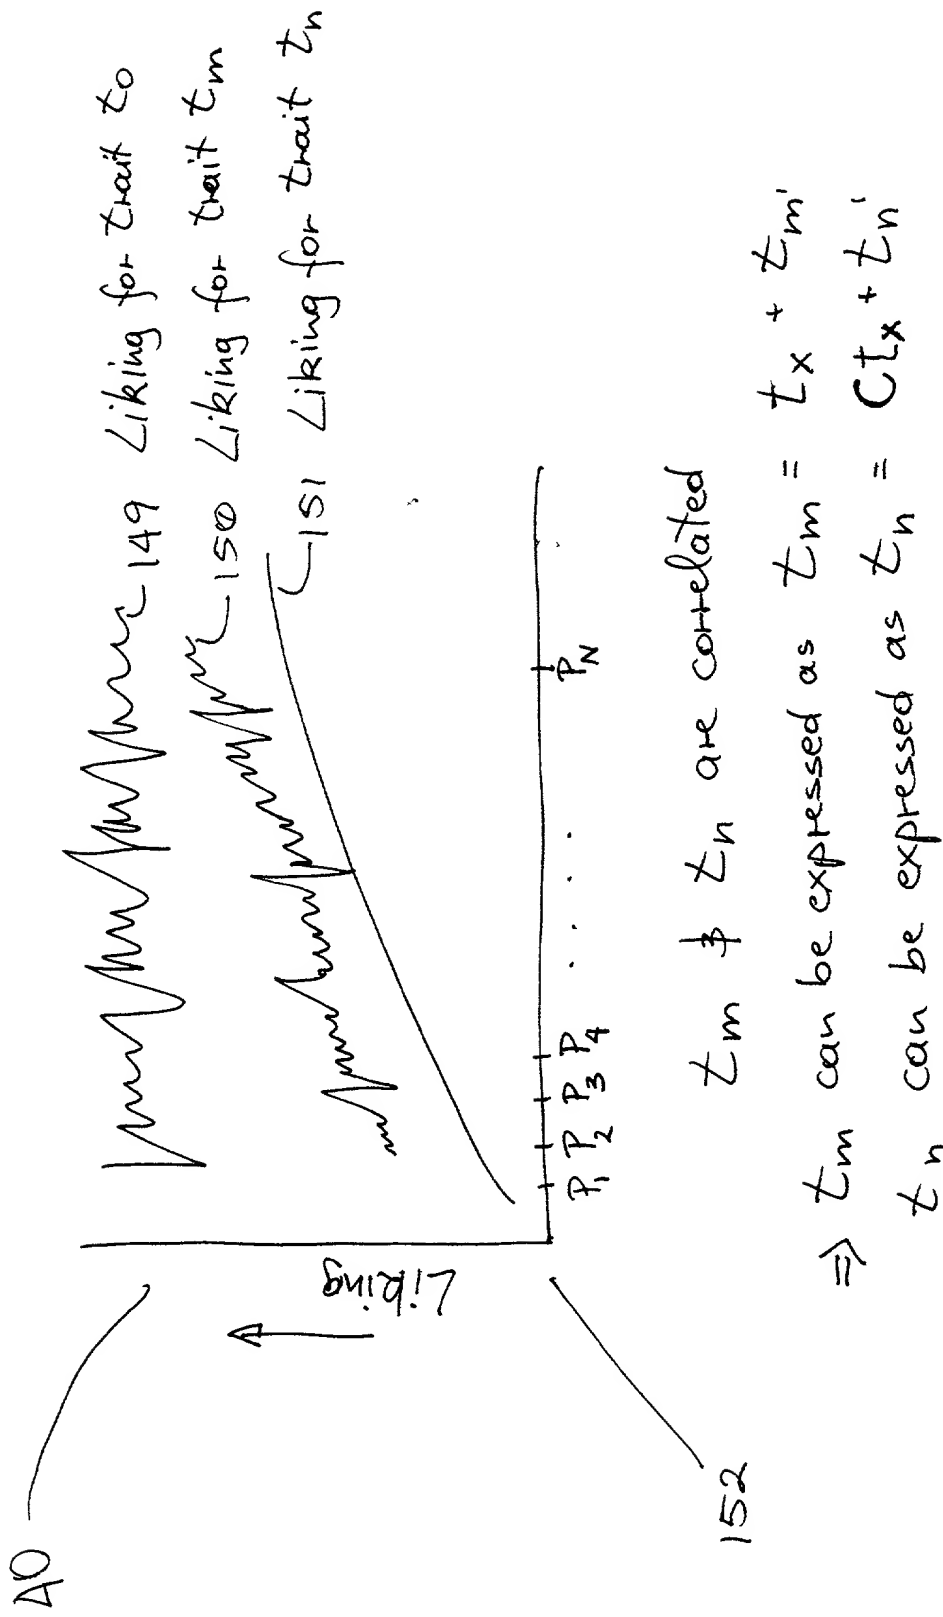 A0
149 Liking for trait to
150 Liking for trait tm
151 Liking for trait tn
Liking
P1 P2 P3 P4 . . . . PN
152
tm & tn are correlated
⇒ tm can be expressed as tm = tx + tm'
tn can be expressed as tn = Ctx + tn'